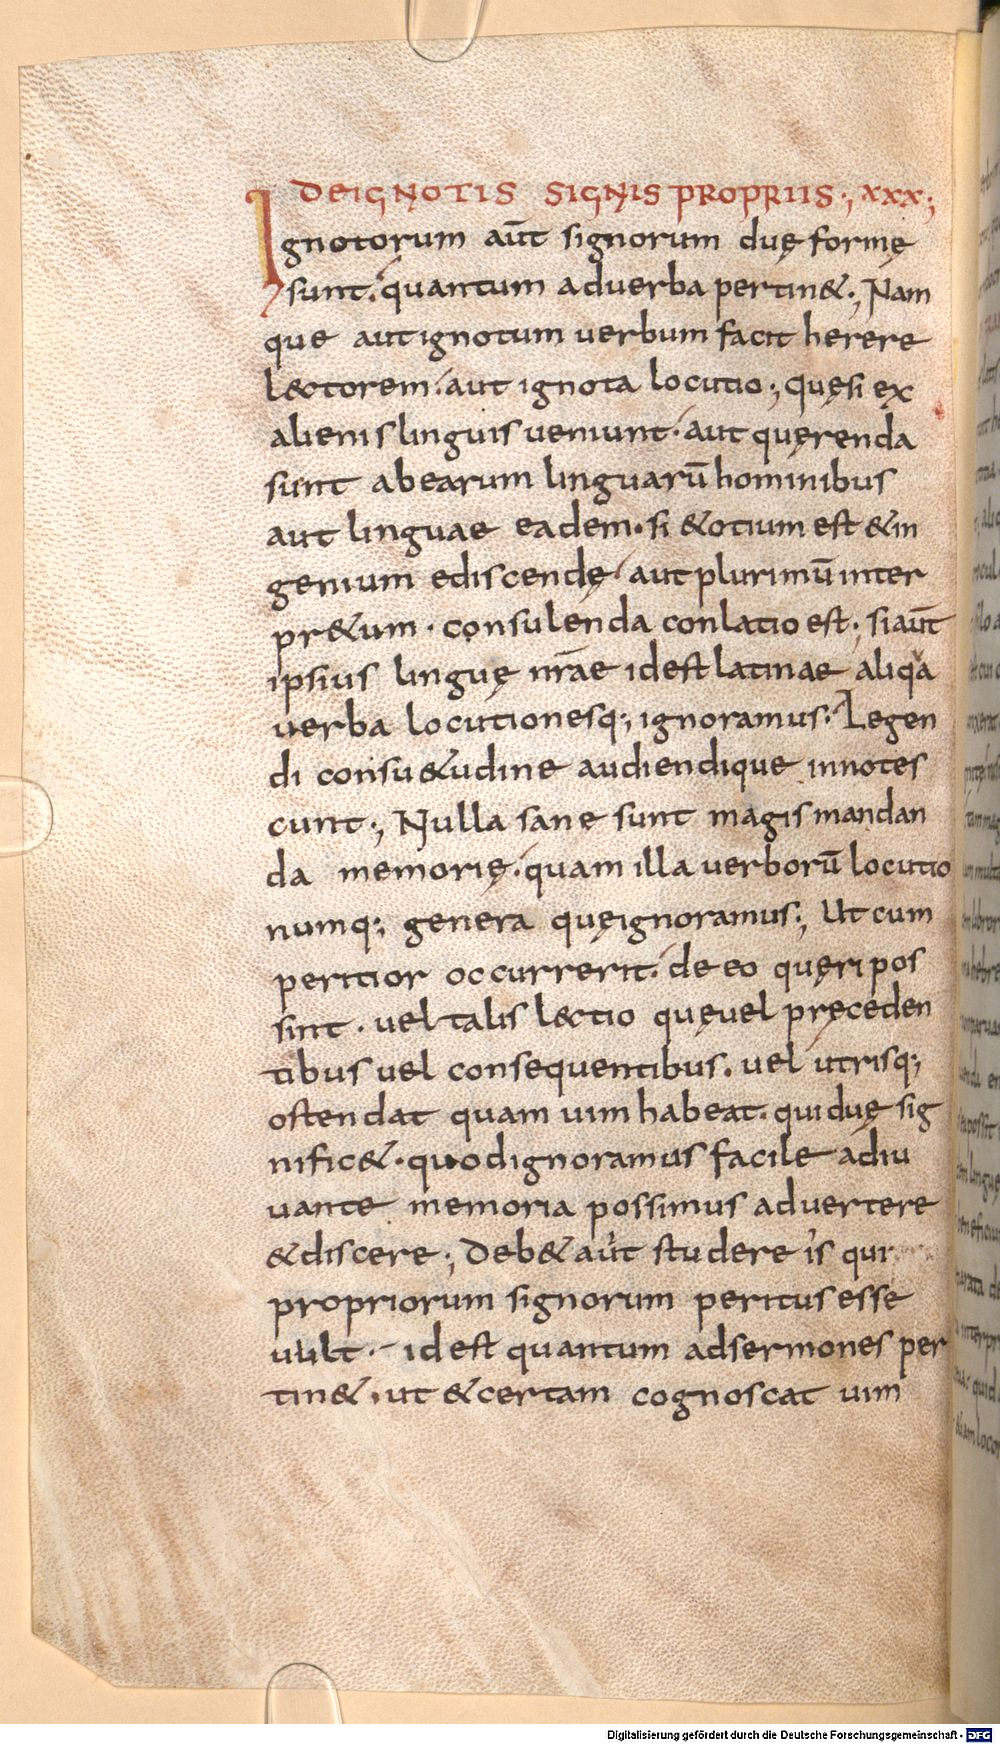 DE IGNOTIS SIGNIS PROPRIIS·, XXX·,
Ignotorum aūt signorum duę formę
sunt. quantum adverba pertin&·, Nam
que aut ignotum verbum facit herere
l&ctorem· aut ignota locutio·, quęsi ex
alienis linguis veniunt· aut querenda
sunt abearum linguarū hominibus
aut linguae eadem· si &otium est &in
genium ediscendę· aut plurimū inter
pr&um· consulenda conlatio est·, si aūt
ipsius linguę nr̄ae idest latinae aliqua
verba locutionesq·, ignoramus·, Legen
di consu&udine audiendique innotes
cunt·, Nulla sane sunt magis mandan
da memorię· quam illa verborū locutio
numq·, genera quęignoramus·, Ut cum
peritior occurrerit· de eo quęri pos
sint· vel talis l&ctio quęvel pręceden
tibus vel consequentibus. vel utrisq·,
ostendat quam vim habeat· quidvę sig
nific&· quod ignoramus facile adiu
vante memoria possimus advertere
&discere·, Deb& aūt studere is qui
propriorum signorum peritus esse
vult·- idest quantum adsermones per
tin&, ut &certam cognoscat vim
Digitalisierung gefördert durch die Deutsche Forschungsgemeinschaft - DFG